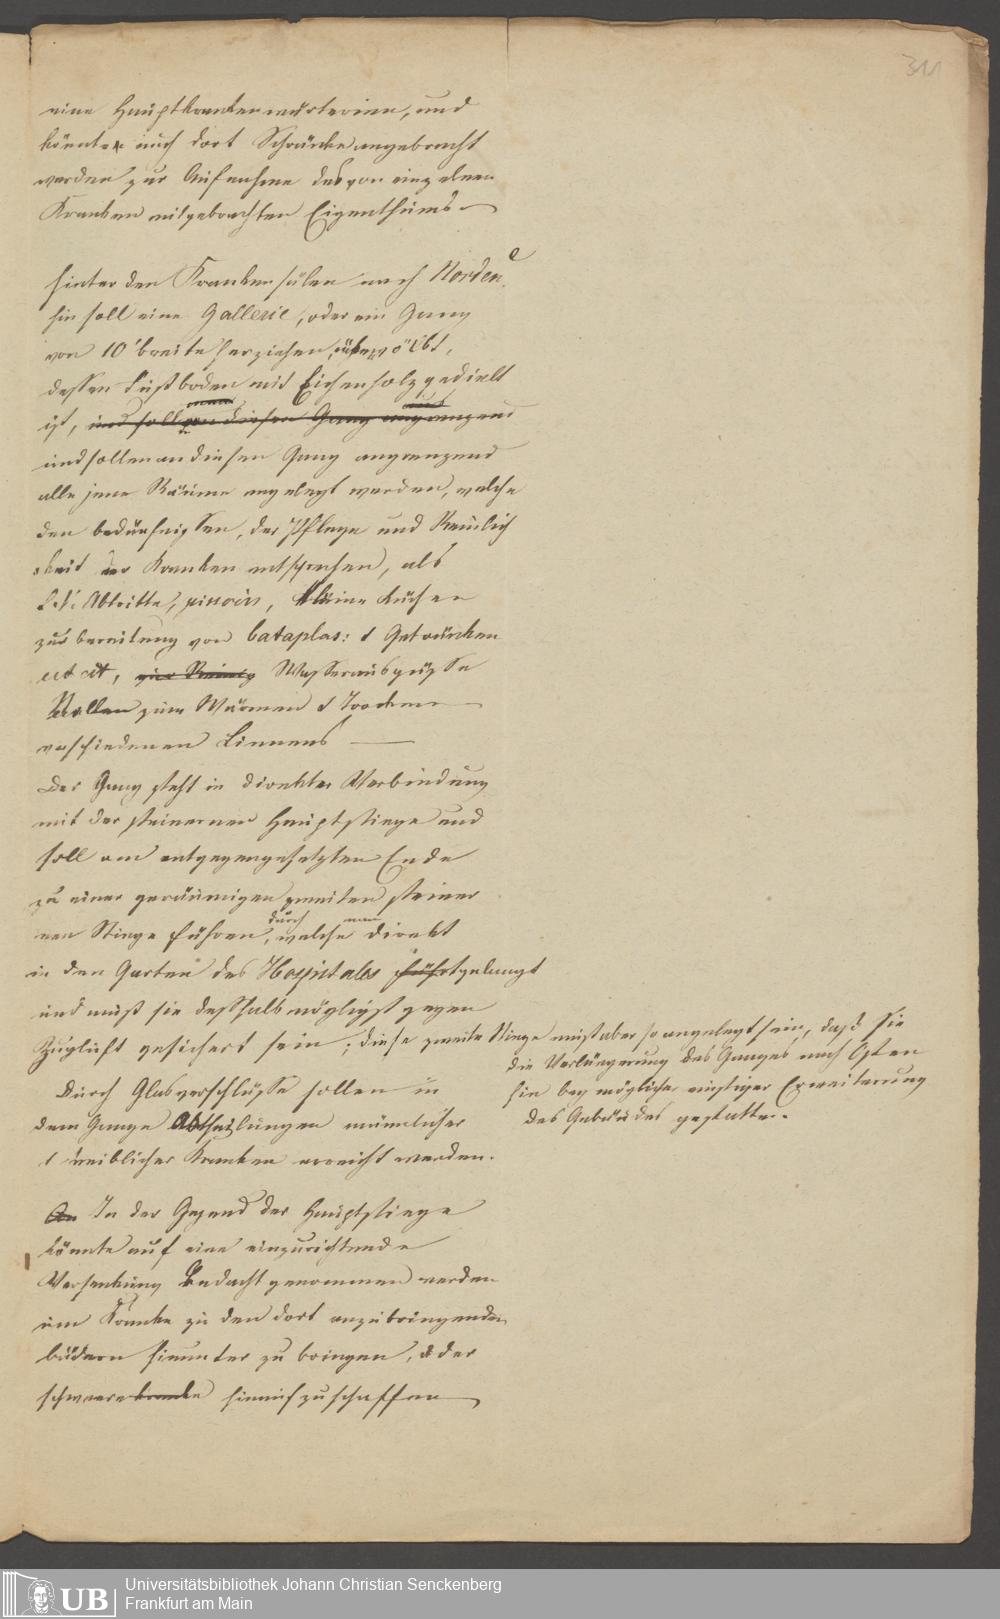 311
eine Hauptkrankenwärterinn, und
könnten auch dort Schränke angebracht
werden zur Aufnahme des von einzelnen
Kranken mitgebrachten Eigenthums
hinter den Krankensälen nach Norden
hin soll eine Gallerie, oder ein Gang
von 10' breite herziehen, überwölbt,
dessen Fußboden mit Eichenholz gedielt
ist, und soll an diesen Gang angrenzend
und sollen an diesen Gang angrenzend
alle jene Räume angelegt werden, welche
den bedürfnißen, der Pflege und Reinlich
keit der Kranken entsprechen, als
Abtritte, pissoirs, kleine Küchen
zur bereitung von Cataplas: & Getränken
Wasserausgüße
zum Wärmen & Trocknen
verschiedenen Linnens
Der Gang steht in direkter Verbindung
mit der steinernen Hauptstiege und
soll am entgegengesetzten Ende
zu einer geräumigen zweiten steiner
nen Stiege führen, durch welche man direkt
in den Garten des Hospitales führt gelangt
und muß sie deßhalb möglichst gegen
Zugluft gesichert sein; diese zweite Stiege muß aber so angelegt sein, daß sie
die Verlängerung des Ganges nach Osten
hin bey möglicher einstiger Erweiterung
des Gebäudes gestatte.
Durch Glasverschlüße sollen in
dem Gange Abtheilungen männlicher
& weiblicher Kranken erreicht werden.
An In der Gegend der Hauptstiege
könnte auf eine einzurichtende
Versenkung Bedacht genommen werden
um Kranke zu den dort anzubringenden
bädern hinunter zu bringen, oder
schwerekranke hinaufzuschaffen
UB Universitätsbibliothek Johann Christian Senckenberg
Frankfurt am Main